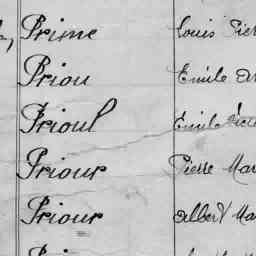 Prime Louis Pier
Priou Emile
Prioul Emile
Priour Pierre Mar
Priour Albert Ma